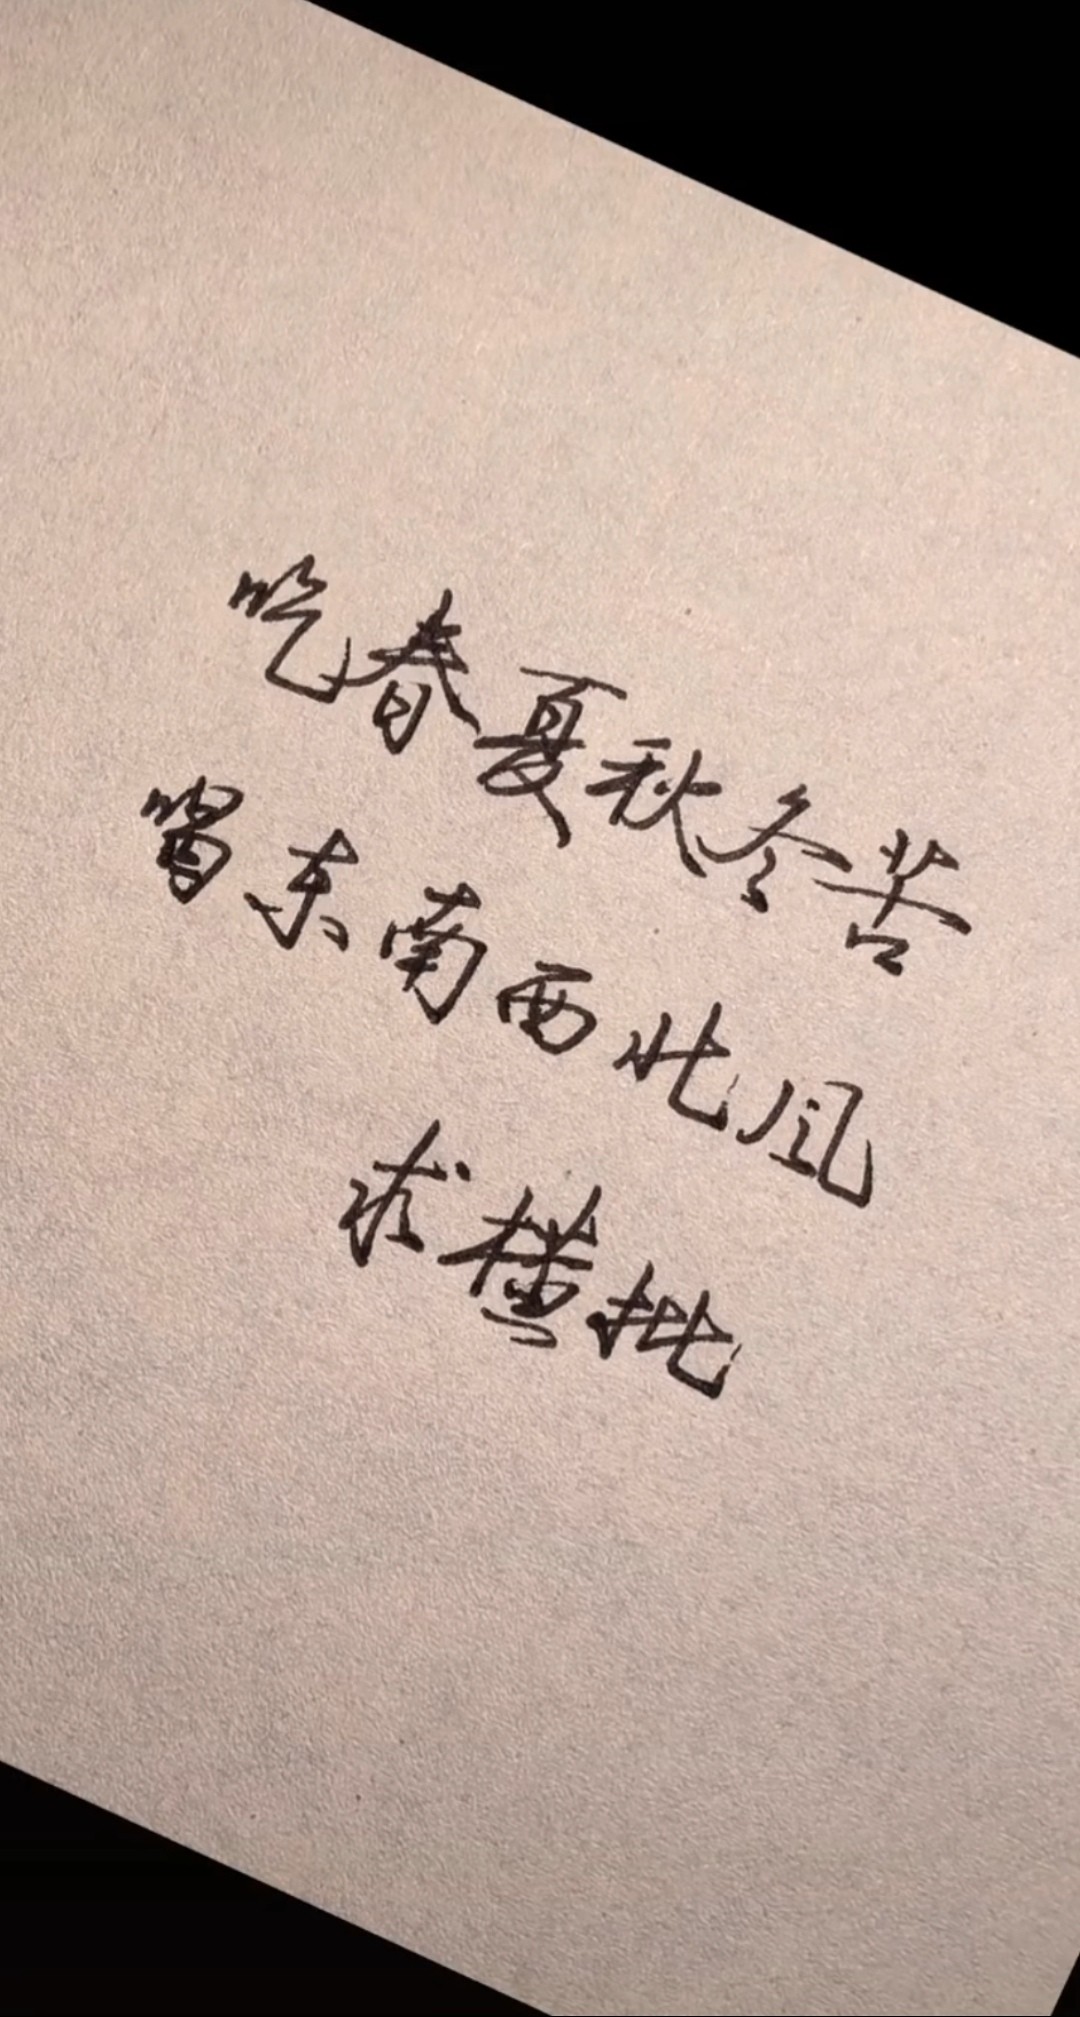 吃春夏秋冬苦
喾东南西北风
求横批